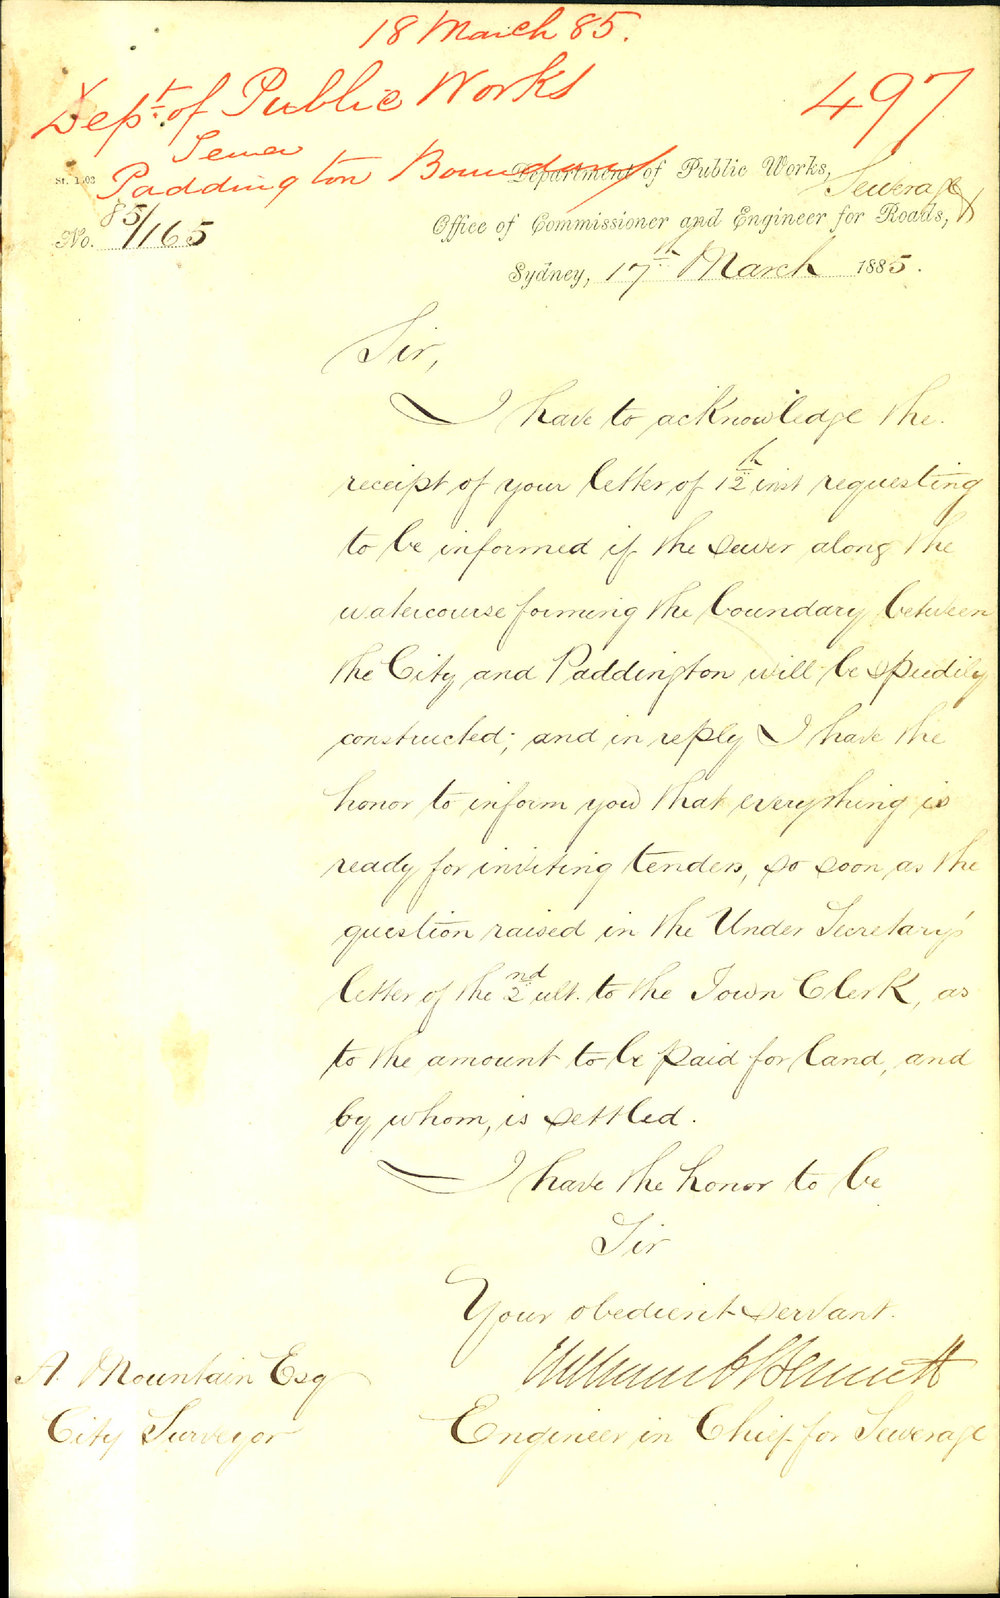 18 March 85.
Dept. of Public Works
497
Sewer
Paddington Boundary
Department of Public Works,
Sewerage &
Office of Commissioner and Engineer for Roads,
No. 85/165
Sydney, 17th March 1885.
Sir,
I have to acknowledge the
receipt of your letter of 12th inst requesting
to be informed if the sewer along the
watercourse forming the boundary between
the City and Paddington will be speedily
constructed; and in reply I have the
honor to inform you that everything is
ready for inviting tenders, so soon as the
question raised in the Under Secretary's
letter of the 2nd ult. to the Town Clerk, as
to the amount to be paid for land, and
by whom, is settled.
I have the honor to be
Sir
Your obedient servant.
William C Bennett
A. Mountain Esq
City Surveyor
Engineer in Chief for Sewerage